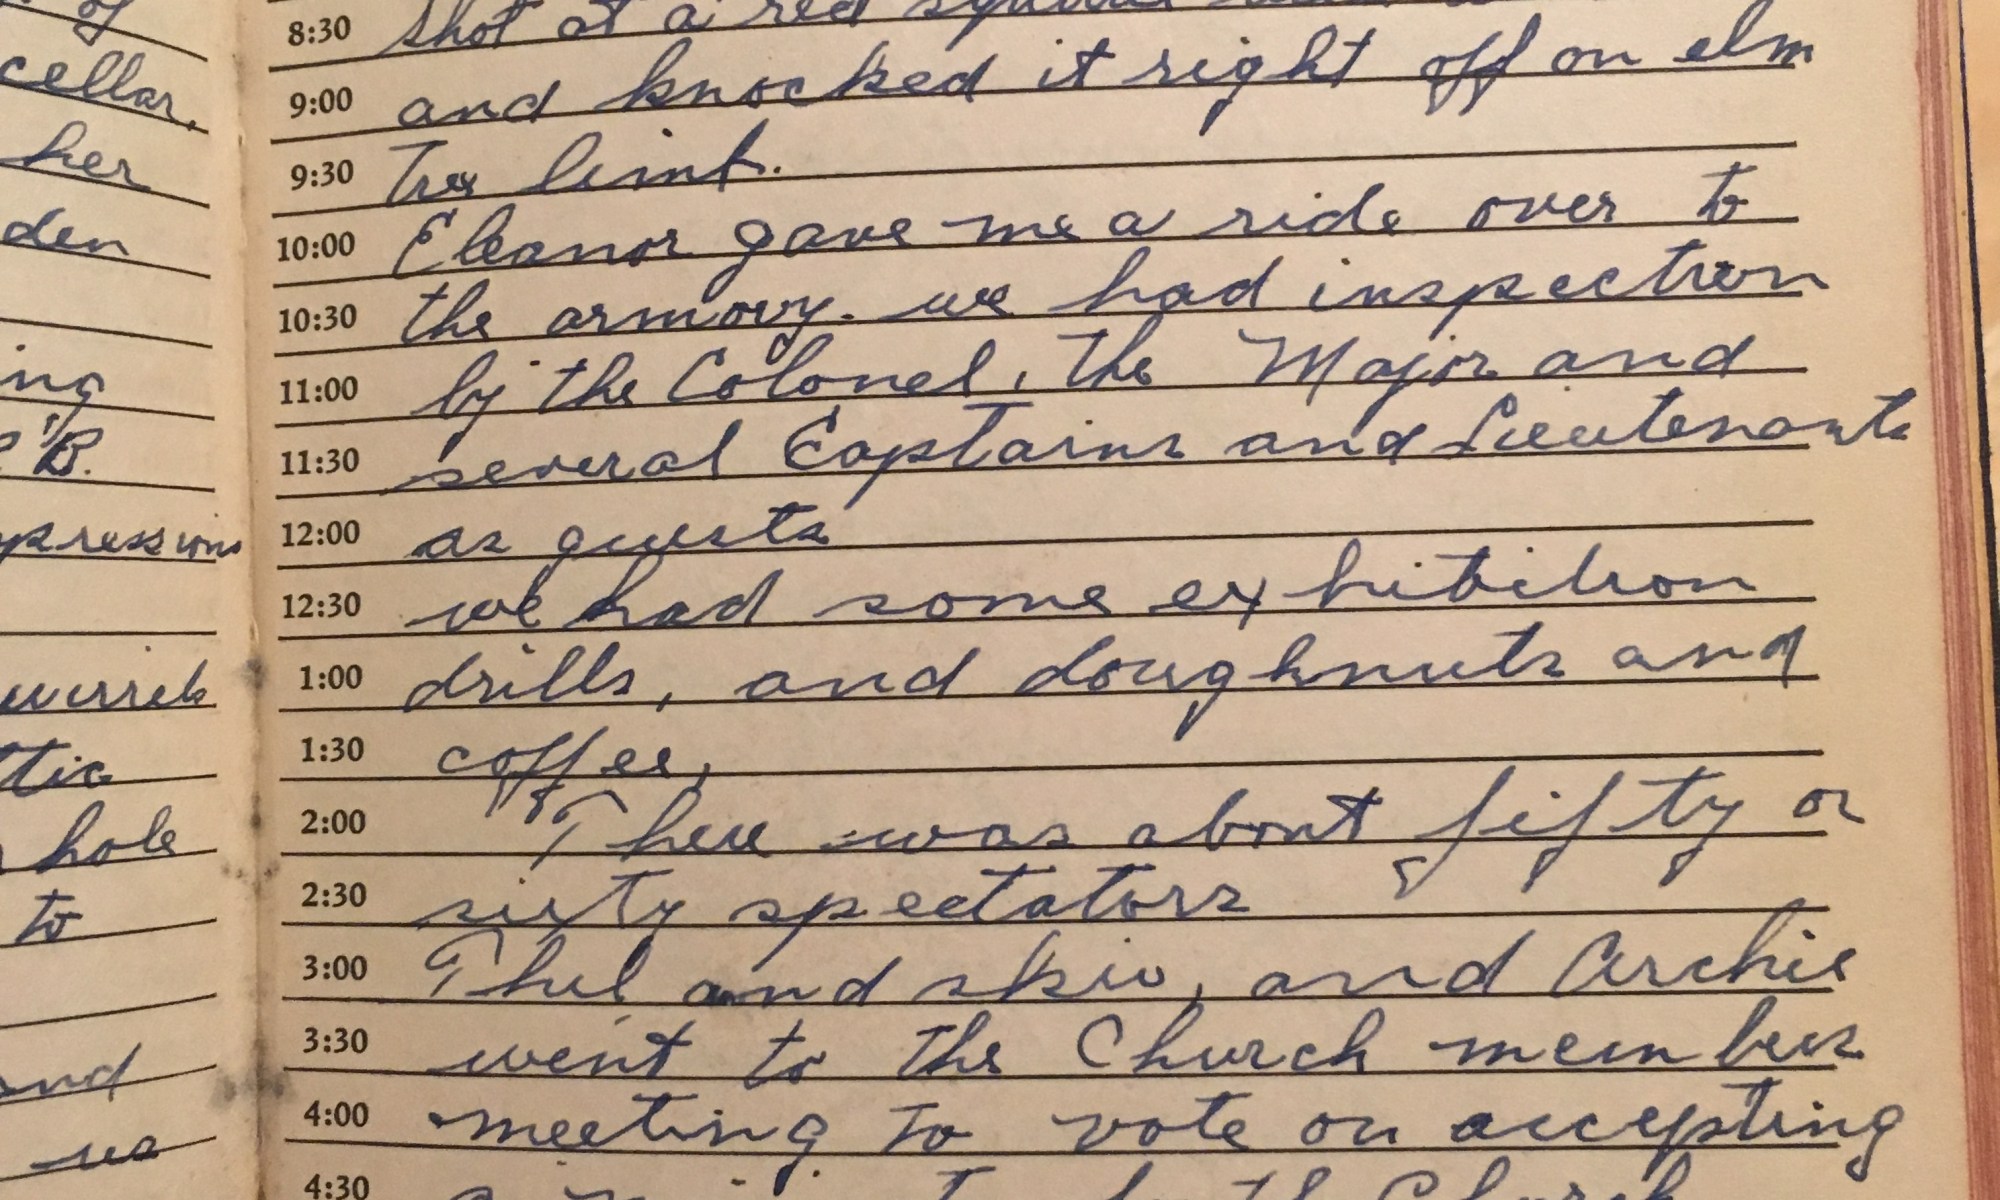 of
cellar,
her
den
ing
B.
pressions
uirrels
ttic
hole
to
and
us
8:30 shot at a red squirrel
9:00 and knocked it right off on elm
9:30 Tree limb.
10:00 Eleanor gave me a ride over to
10:30 the armory. we had inspection
11:00 by the Colonel, the Major and
11:30 several Captains and Lieutenants
12:00 as guests
12:30 we had some exhibition
1:00 drills, and doughnuts and
1:30 coffee,
2:00 There was about fifty or
2:30 sixty spectators
3:00 Phil and skiv, and Archie
3:30 went to the Church members
4:00 meeting to vote on accepting
4:30 Church